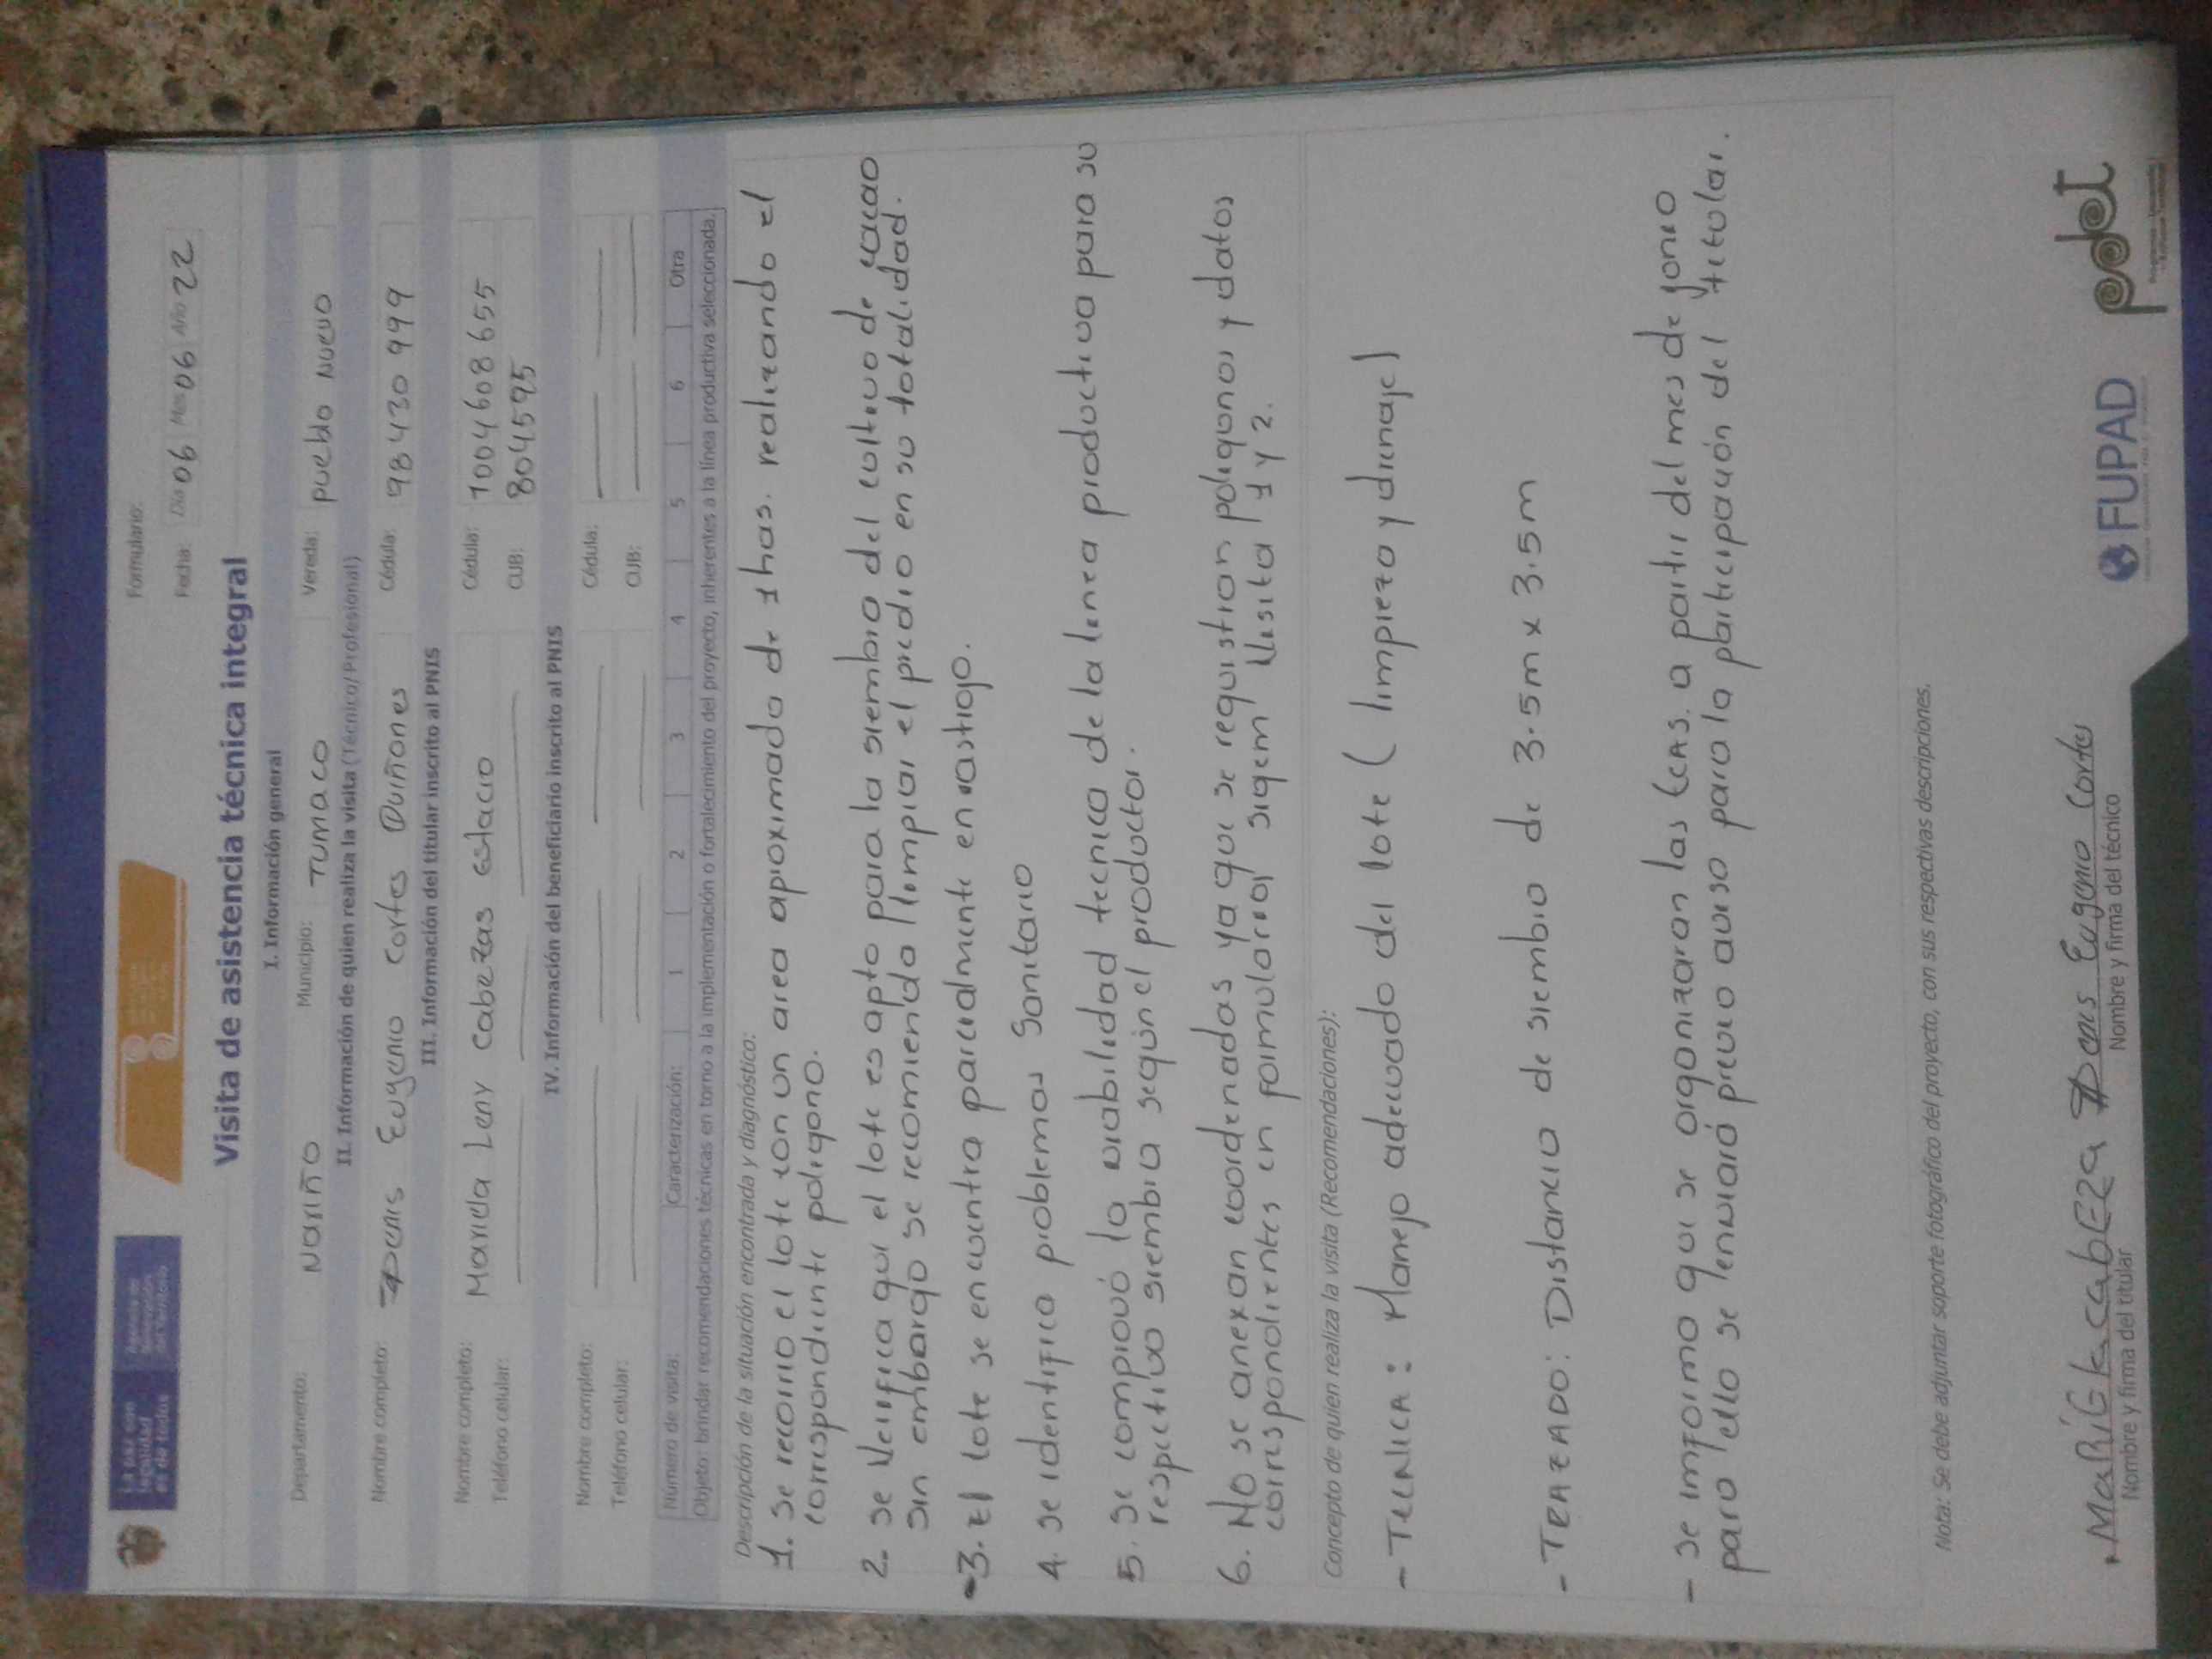 La paz con legalidad es de todos
Agencia de Renovación del Territorio
Formulario:
Fecha: Día 06 Mes 06 Año 22
Visita de asistencia técnica integral
I. Información general
Departamento: Nariño Municipio: Tumaco Vereda: pueblo Nuevo
II. Información de quien realiza la visita (Técnico/ Profesional)
Nombre completo: Denis Eugenio Cortes Quiñones Cédula: 98 430 999
III. Información del titular inscrito al PNIS
Nombre completo: Mariela Leny Cabezas Estacio Cédula: 1004608655
Teléfono celular: CUB: 804595
IV. Información del beneficiario inscrito al PNIS
Nombre completo: Cédula:
Teléfono celular: CUB:
Número de visita: Caracterización: 1 2 3 4 5 6 Otra
Objeto: brindar recomendaciones técnicas en torno a la implementación o fortalecimiento del proyecto, inherentes a la línea productiva seleccionada.
Descripción de la situación encontrada y diagnóstico:
1. se recorrio el lote con un area aproximado de 1 has. realizando el
correspondiente poligono.
2. se Verifica que el lote es apto para la siembra del cultivo de cacao
sin embargo se recomienda limpiar el predio en su totalidad.
3. El lote se encuentra parcialmente en rastrojo.
4. se identifica problemas sanitario
5. se comprobó la viabilidad tecnica de la linea productiva para su
respectivo siembra según el productor.
6. No se anexan coordenadas ya que se requistion poligonos y datos
correspondientes en formularios sigem Visita 1 y 2.
Concepto de quien realiza la visita (Recomendaciones):
- TECNICA: Manejo adecuado del lote ( limpieza y drenaje)
- TRAZADO: Distancia de siembra de 3.5m x 3.5m
- se informo que se organizaran las ECAS. a partir del mes de junio
para ello se lenviará previo aviso para la participación del titular.
Nota: Se debe adjuntar soporte fotográfico del proyecto, con sus respectivas descripciones.
Denis Eugenio Cortes
Nombre y firma del titular Nombre y firma del técnico
FUPAD
pdet